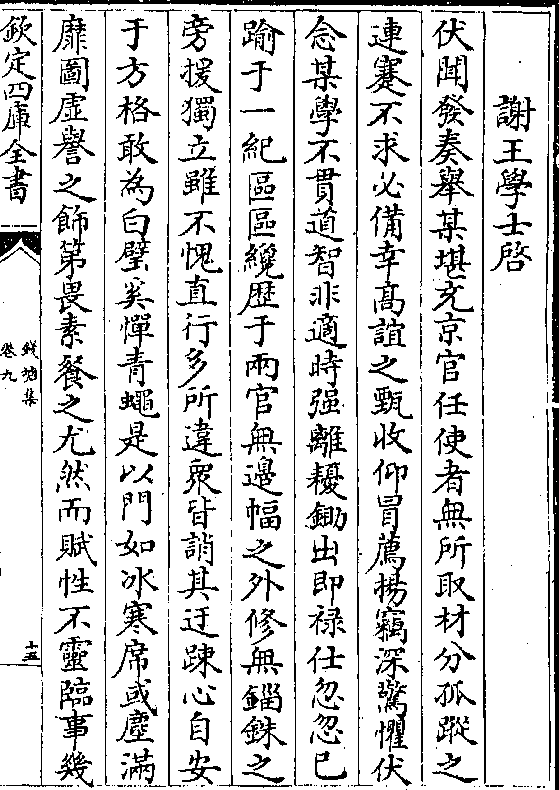 謝王學士啓
伏聞發奏舉某堪充京官任使者無所取材分孤蹤之
連蹇不求必備幸髙誼之甄收仰冒薦揚竊深驚懼伏
念某學不貫道智非適時强離耰鋤出即禄仕忽忽已
踰于一紀區區纔歴于兩官無邊幅之外修無錙銖之
旁援獨立雖不愧直行多所違衆皆誚其迂踈心自安
于方格敢為白璧奚憚青蠅是以門如冰寒席或塵滿
靡圖虚譽之飾第畏素餐之尤然而賦性不靈臨事幾
欽定四庫全書
錢塘集
卷九
十五